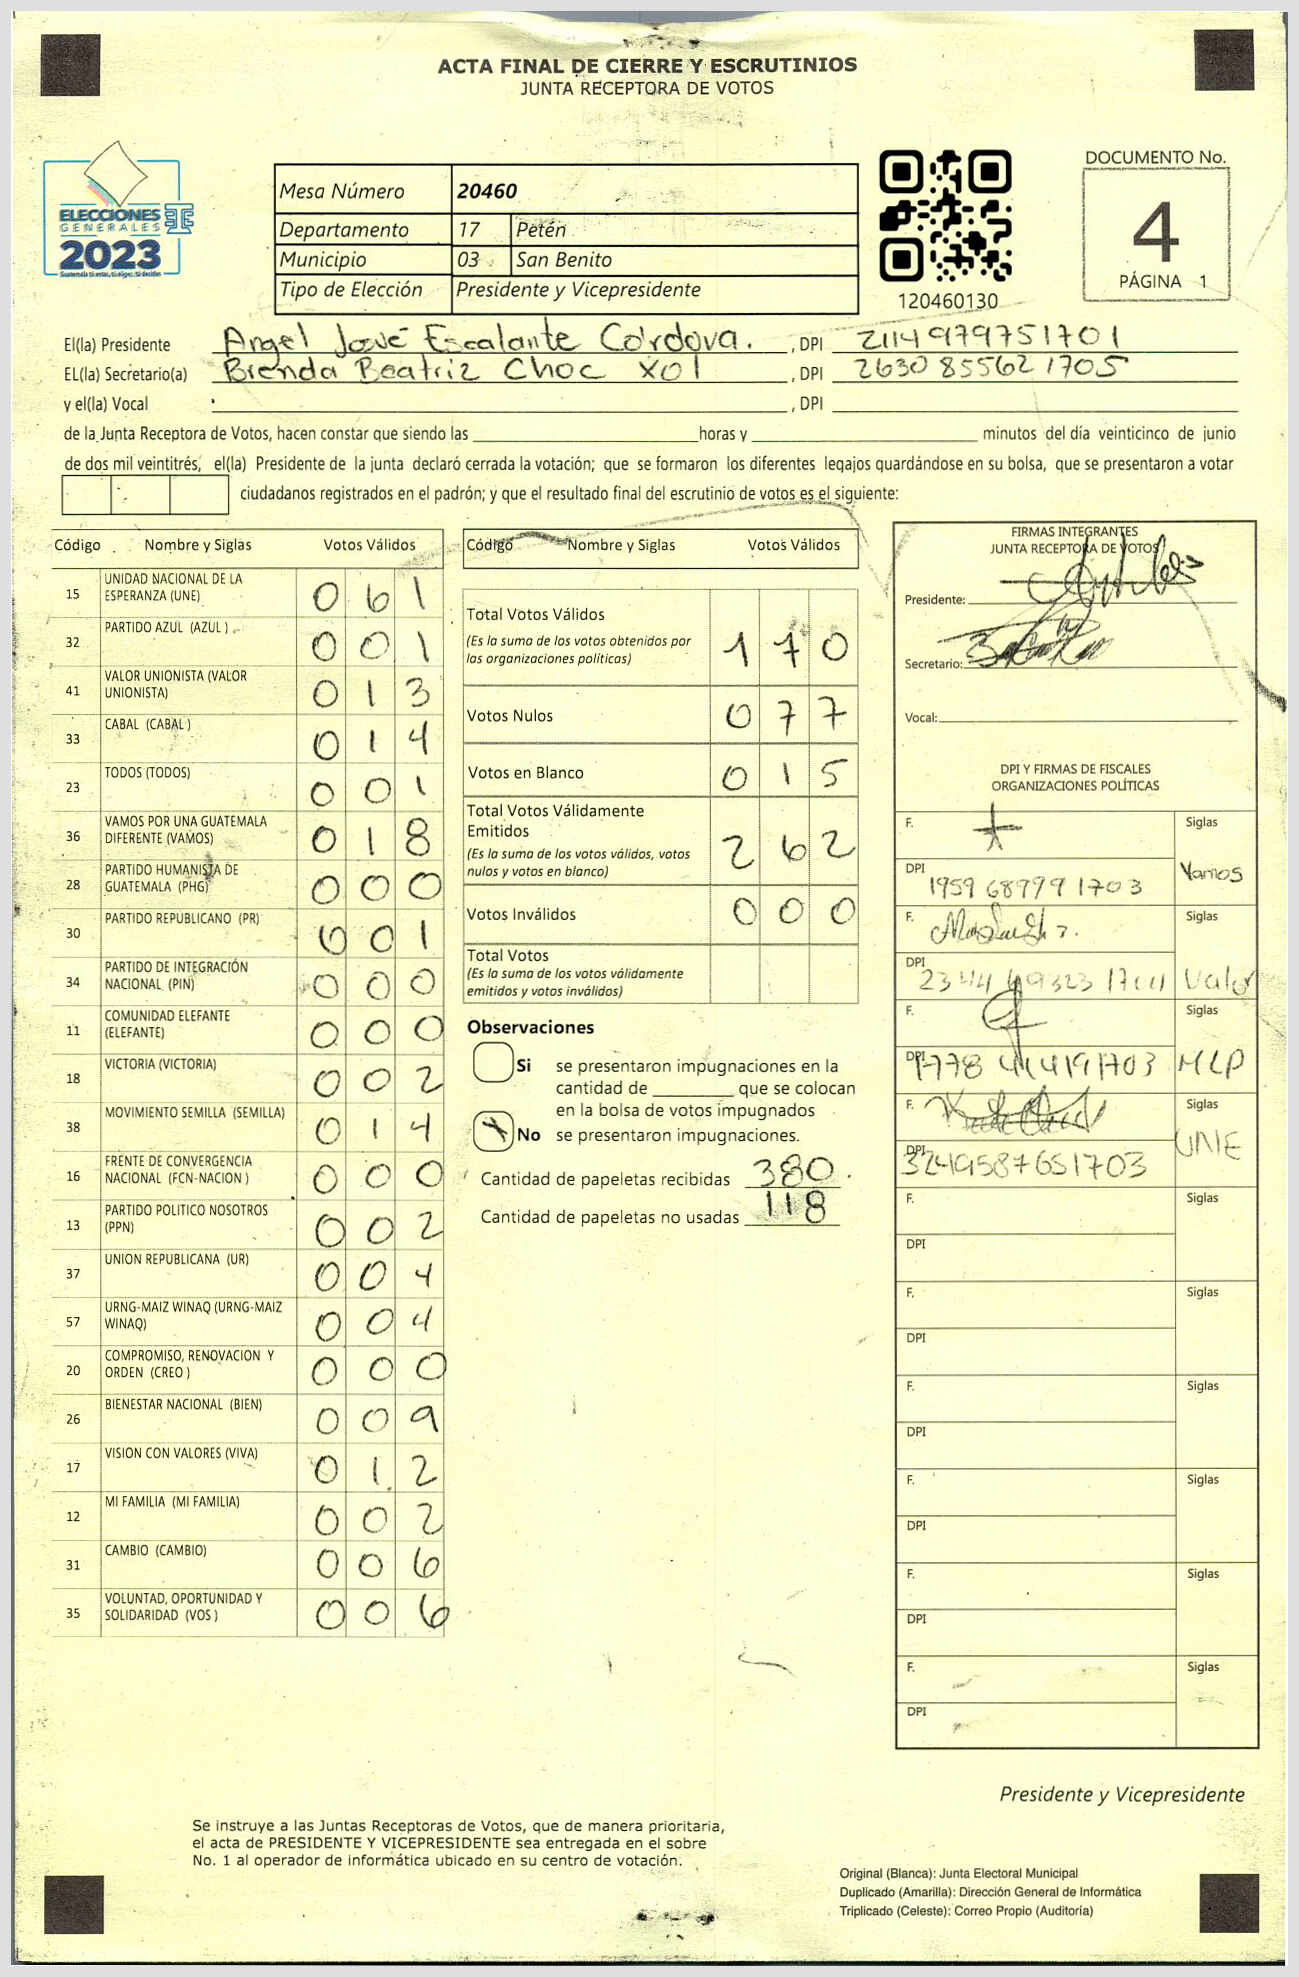 ACTA FINAL DE CIERRE Y ESCRUTINIOS
JUNTA RECEPTORA DE VOTOS
ELECCIONES
GENERALES
2023
Mesa Número 20460
Departamento 17 Petén
Municipio 03 San Benito
Tipo de Elección Presidente y Vicepresidente
120460130
DOCUMENTO No.
4
PÁGINA 1
El(la) Presidente Angel José Escalante Córdova. , DPI 2114979751701
EL(la) Secretario(a) Brenda Beatriz Choc Xol , DPI 2630855621705
y el(la) Vocal , DPI
de la Junta Receptora de Votos, hacen constar que siendo las horas y minutos del día veinticinco de junio
de dos mil veintitrés, el(la) Presidente de la junta declaró cerrada la votación; que se formaron los diferentes legajos guardándose en su bolsa, que se presentaron a votar
ciudadanos registrados en el padrón; y que el resultado final del escrutinio de votos es el siguiente:
Código Nombre y Siglas Votos Válidos
15 UNIDAD NACIONAL DE LA ESPERANZA (UNE) 061
32 PARTIDO AZUL (AZUL ) 001
41 VALOR UNIONISTA (VALOR UNIONISTA) 013
33 CABAL (CABAL ) 014
23 TODOS (TODOS) 001
36 VAMOS POR UNA GUATEMALA DIFERENTE (VAMOS) 018
28 PARTIDO HUMANISTA DE GUATEMALA (PHG) 000
30 PARTIDO REPUBLICANO (PR) 001
34 PARTIDO DE INTEGRACIÓN NACIONAL (PIN) 000
11 COMUNIDAD ELEFANTE (ELEFANTE) 000
18 VICTORIA (VICTORIA) 002
38 MOVIMIENTO SEMILLA (SEMILLA) 014
16 FRENTE DE CONVERGENCIA NACIONAL (FCN-NACION ) 000
13 PARTIDO POLITICO NOSOTROS (PPN) 002
37 UNION REPUBLICANA (UR) 004
57 URNG-MAIZ WINAQ (URNG-MAIZ WINAQ) 004
20 COMPROMISO, RENOVACION Y ORDEN (CREO ) 000
26 BIENESTAR NACIONAL (BIEN) 009
17 VISION CON VALORES (VIVA) 012
12 MI FAMILIA (MI FAMILIA) 002
31 CAMBIO (CAMBIO) 006
35 VOLUNTAD, OPORTUNIDAD Y SOLIDARIDAD (VOS ) 006
Código Nombre y Siglas Votos Válidos
Total Votos Válidos 170
(Es la suma de los votos obtenidos por
las organizaciones políticas)
Votos Nulos 077
Votos en Blanco 015
Total Votos Válidamente
Emitidos 262
(Es la suma de los votos válidos, votos
nulos y votos en blanco)
Votos Inválidos 000
Total Votos
(Es la suma de los votos válidamente
emitidos y votos inválidos)
Observaciones
Si se presentaron impugnaciones en la
cantidad de que se colocan
en la bolsa de votos impugnados
No se presentaron impugnaciones.
Cantidad de papeletas recibidas 380
Cantidad de papeletas no usadas 118
FIRMAS INTEGRANTES
JUNTA RECEPTORA DE VOTOS
Presidente:
Secretario:
Vocal:
DPI Y FIRMAS DE FISCALES
ORGANIZACIONES POLÍTICAS
F. Siglas
DPI 1959 68999 1703 Vamos
F. Siglas
DPI Valor
F. Siglas
DPI MLP
F. Siglas
DPI 3249587651703 UNE
F. Siglas
DPI
F. Siglas
DPI
F. Siglas
DPI
F. Siglas
DPI
F. Siglas
DPI
F. Siglas
DPI
Presidente y Vicepresidente
Se instruye a las Juntas Receptoras de Votos, que de manera prioritaria,
el acta de PRESIDENTE Y VICEPRESIDENTE sea entregada en el sobre
No. 1 al operador de informática ubicado en su centro de votación.
Original (Blanca): Junta Electoral Municipal
Duplicado (Amarilla): Dirección General de Informática
Triplicado (Celeste): Correo Propio (Auditoría)